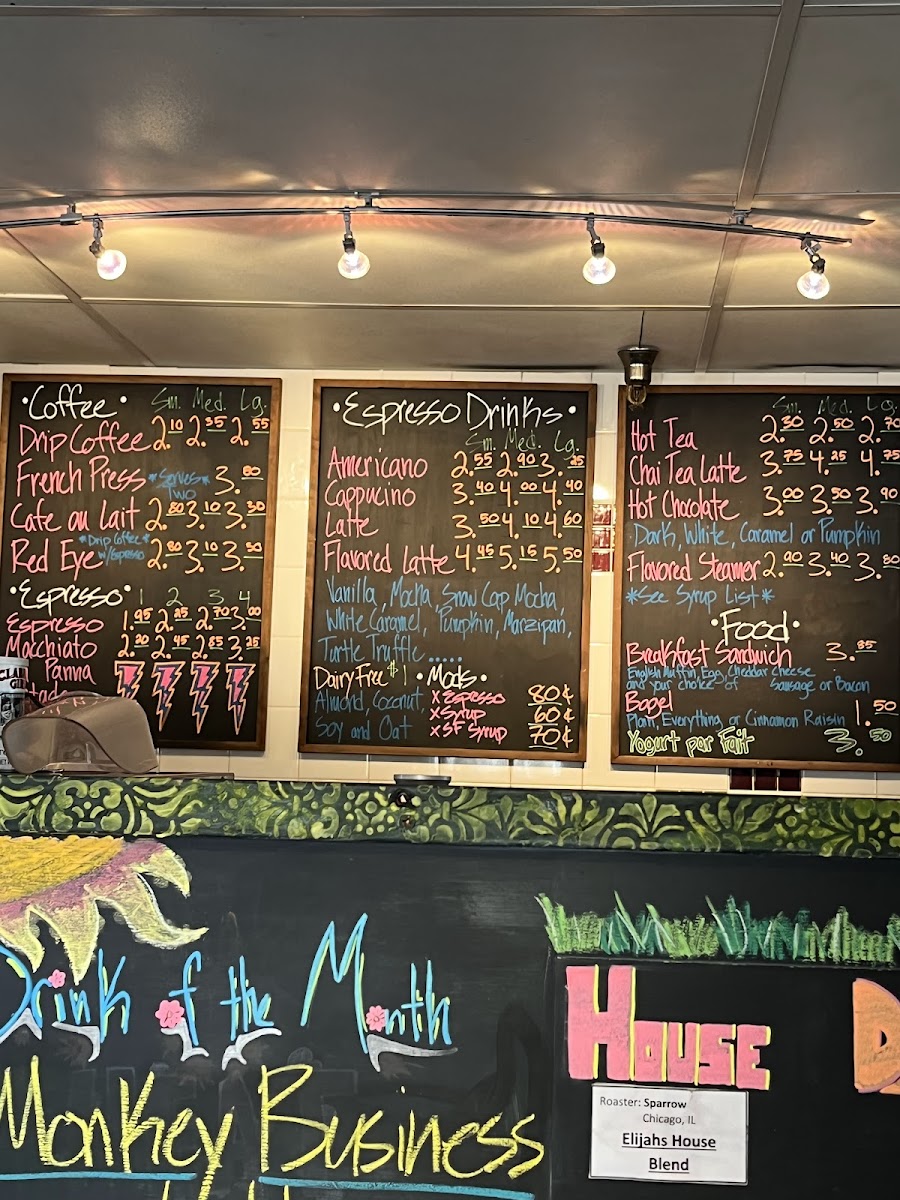 •Coffee• Sm. Med. Lg.
Drip Coffee 2.10 2.35 2.55
French Press *Serves Two* 3.80
Cafe au Lait 2.80 3.10 3.30
*Drip Coffee w/Espresso*
Red Eye 2.80 3.10 3.50
•Espresso• 1 2 3 4
Espresso 1.95 2.25 2.70 3.00
Macchiato 2.20 2.45 2.85 3.25
Panna
•Espresso Drinks•
Sm. Med. Lg.
Americano 2.55 2.90 3.25
Cappucino 3.40 4.00 4.40
Latte 3.50 4.10 4.60
Flavored Latte 4.45 5.15 5.50
Vanilla, Mocha, Snow Cap Mocha,
White Caramel, Pumpkin, Marzipan,
Turtle Truffle .....
Dairy Free $1
Almond, Coconut
Soy and Oat
•Mods•
X Espresso 80¢
X Syrup 60¢
X SF Syrup 70¢
Sm. Med. Lg.
Hot Tea 2.30 2.50 2.70
Chai Tea Latte 3.75 4.25 4.75
Hot Chocolate 3.00 3.50 3.90
Dark, White, Caramel or Pumpkin
Flavored Steamer 2.90 3.40 3.80
*See Syrup List*
•Food•
Breakfast Sandwich 3.85
English Muffin, Egg, Cheddar Cheese
and your choice of Sausage or Bacon
Bagel
Plain, Everything, or Cinnamon Raisin 1.50
Yogurt par Fait 3.50
Drink of the Month
Monkey Business
House
Roaster: Sparrow
Chicago, IL
Elijahs House
Blend